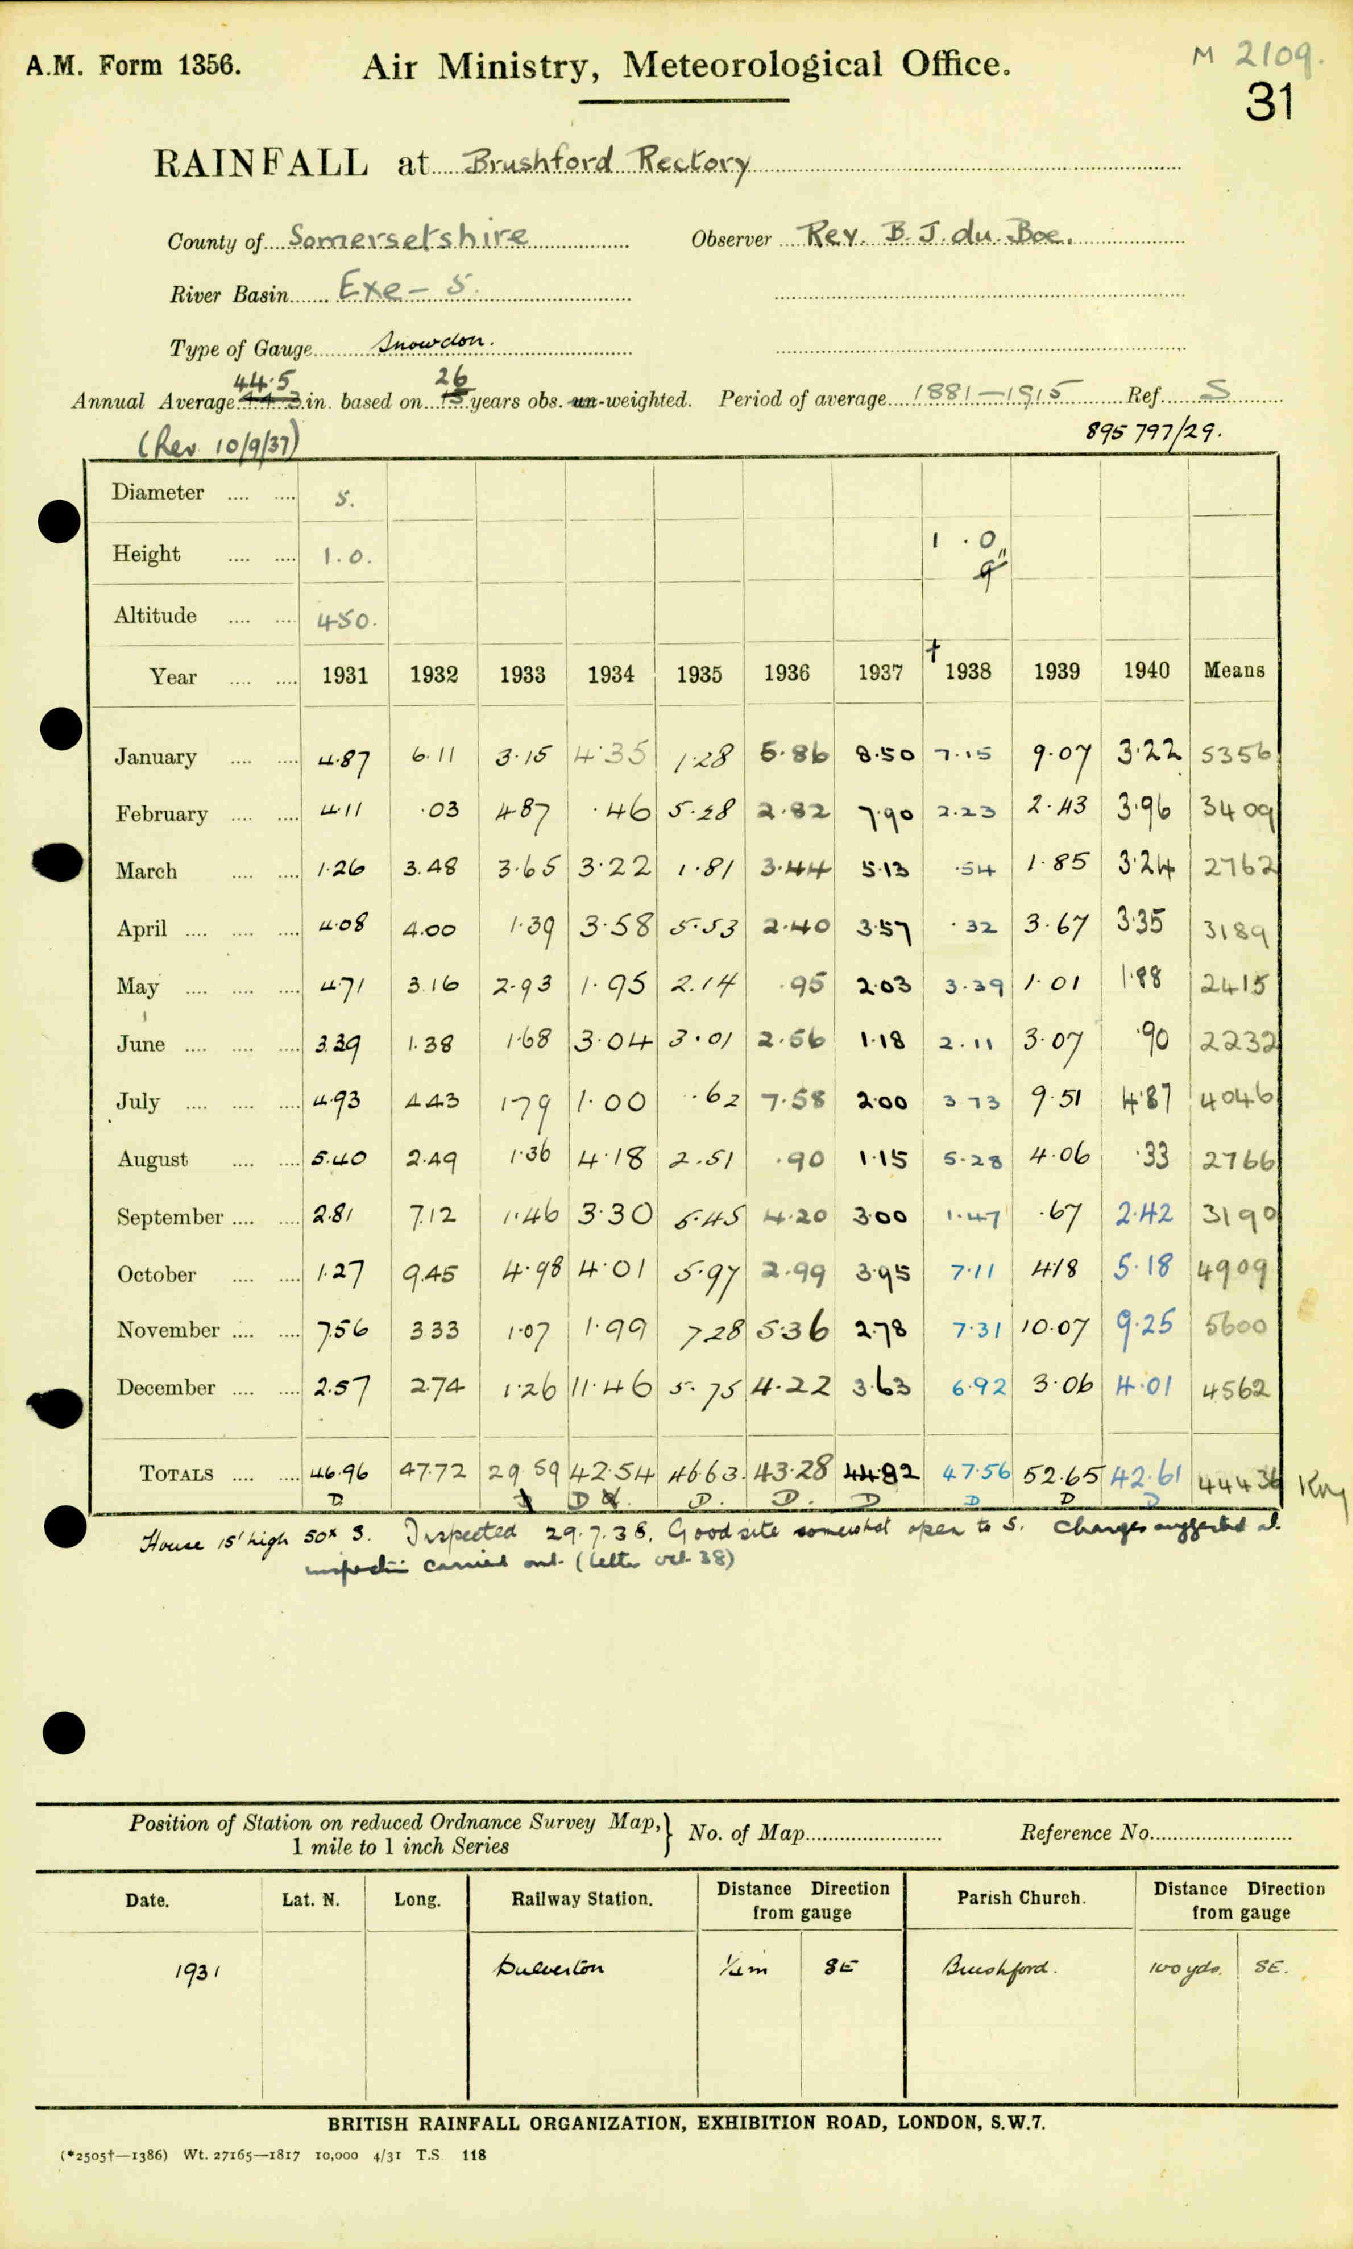 A.M. Form 1356.
Air Ministry, Meteorological Office.
M 2109.
31
RAINFALL at Brushford Rectory
County of Somersetshire Observer Rev. B. J. du Boe.
River Basin Exe - 5.
Type of Gauge Snowdon.
44.5 26
Annual Average 44.3 in. based on 15 years obs. un-weighted. Period of average 1881-1915 Ref. S
(Rev. 10/9/37) 895 797/29.
Diameter .... .... 5.
Height .... .... 1.0. 1 . 0
9"
Altitude .... .... 450.
†
Year .... .... 1931 1932 1933 1934 1935 1936 1937 1938 1939 1940 Means
January .... .... 4.87 6.11 3.15 4.35 1.28 5.86 8.50 7.15 9.07 3.22 5356
February .... .... 4.11 .03 4.87 .46 5.28 2.82 7.90 2.23 2.43 3.96 3409
March .... .... 1.26 3.48 3.65 3.22 1.81 3.44 5.13 .54 1.85 3.24 2762
April .... .... .... 4.08 4.00 1.39 3.58 5.53 2.40 3.57 .32 3.67 3.35 3189
May .... .... .... 4.71 3.16 2.93 1.95 2.14 .95 2.03 3.39 1.01 1.88 2415
June .... .... .... 3.39 1.38 1.68 3.04 3.01 2.56 1.18 2.11 3.07 .90 2232
July .... .... .... 4.93 4.43 1.79 1.00 .62 7.58 2.00 3.73 9.51 4.87 4046
August .... .... 5.40 2.49 1.36 4.18 2.51 .90 1.15 5.28 4.06 .33 2766
September .... .... 2.81 7.12 1.46 3.30 5.45 4.20 3.00 1.47 .67 2.42 3190
October .... .... 1.27 9.45 4.98 4.01 5.97 2.99 3.95 7.11 4.18 5.18 4909
November .... .... 7.56 3.33 1.07 1.99 7.28 5.36 2.78 7.31 10.07 9.25 5600
December .... .... 2.57 2.74 1.26 11.46 5.75 4.22 3.63 6.92 3.06 4.01 4562
TOTALS .... .... 46.96 47.72 29.59 42.54 46.63. 43.28 44.82 47.56 52.65 42.61 44436
D D D. D. D D D D
House 15' high 50x 3. Inspected 29.7.38. Good site somewhat open to S. Changes suggested at
inspection carried out (letter Oct 38)
Position of Station on reduced Ordnance Survey Map,} No. of Map Reference No.
1 mile to 1 inch Series
Date. Lat. N. Long. Railway Station. Distance Direction from gauge Parish Church. Distance Direction from gauge
1931 Dulverton ¼ m SE Brushford. 100 yds. SE.
BRITISH RAINFALL ORGANIZATION, EXHIBITION ROAD, LONDON, S.W.7.
(*2505†—1386) Wt. 27165—1817 10,000 4/31 T.S 118